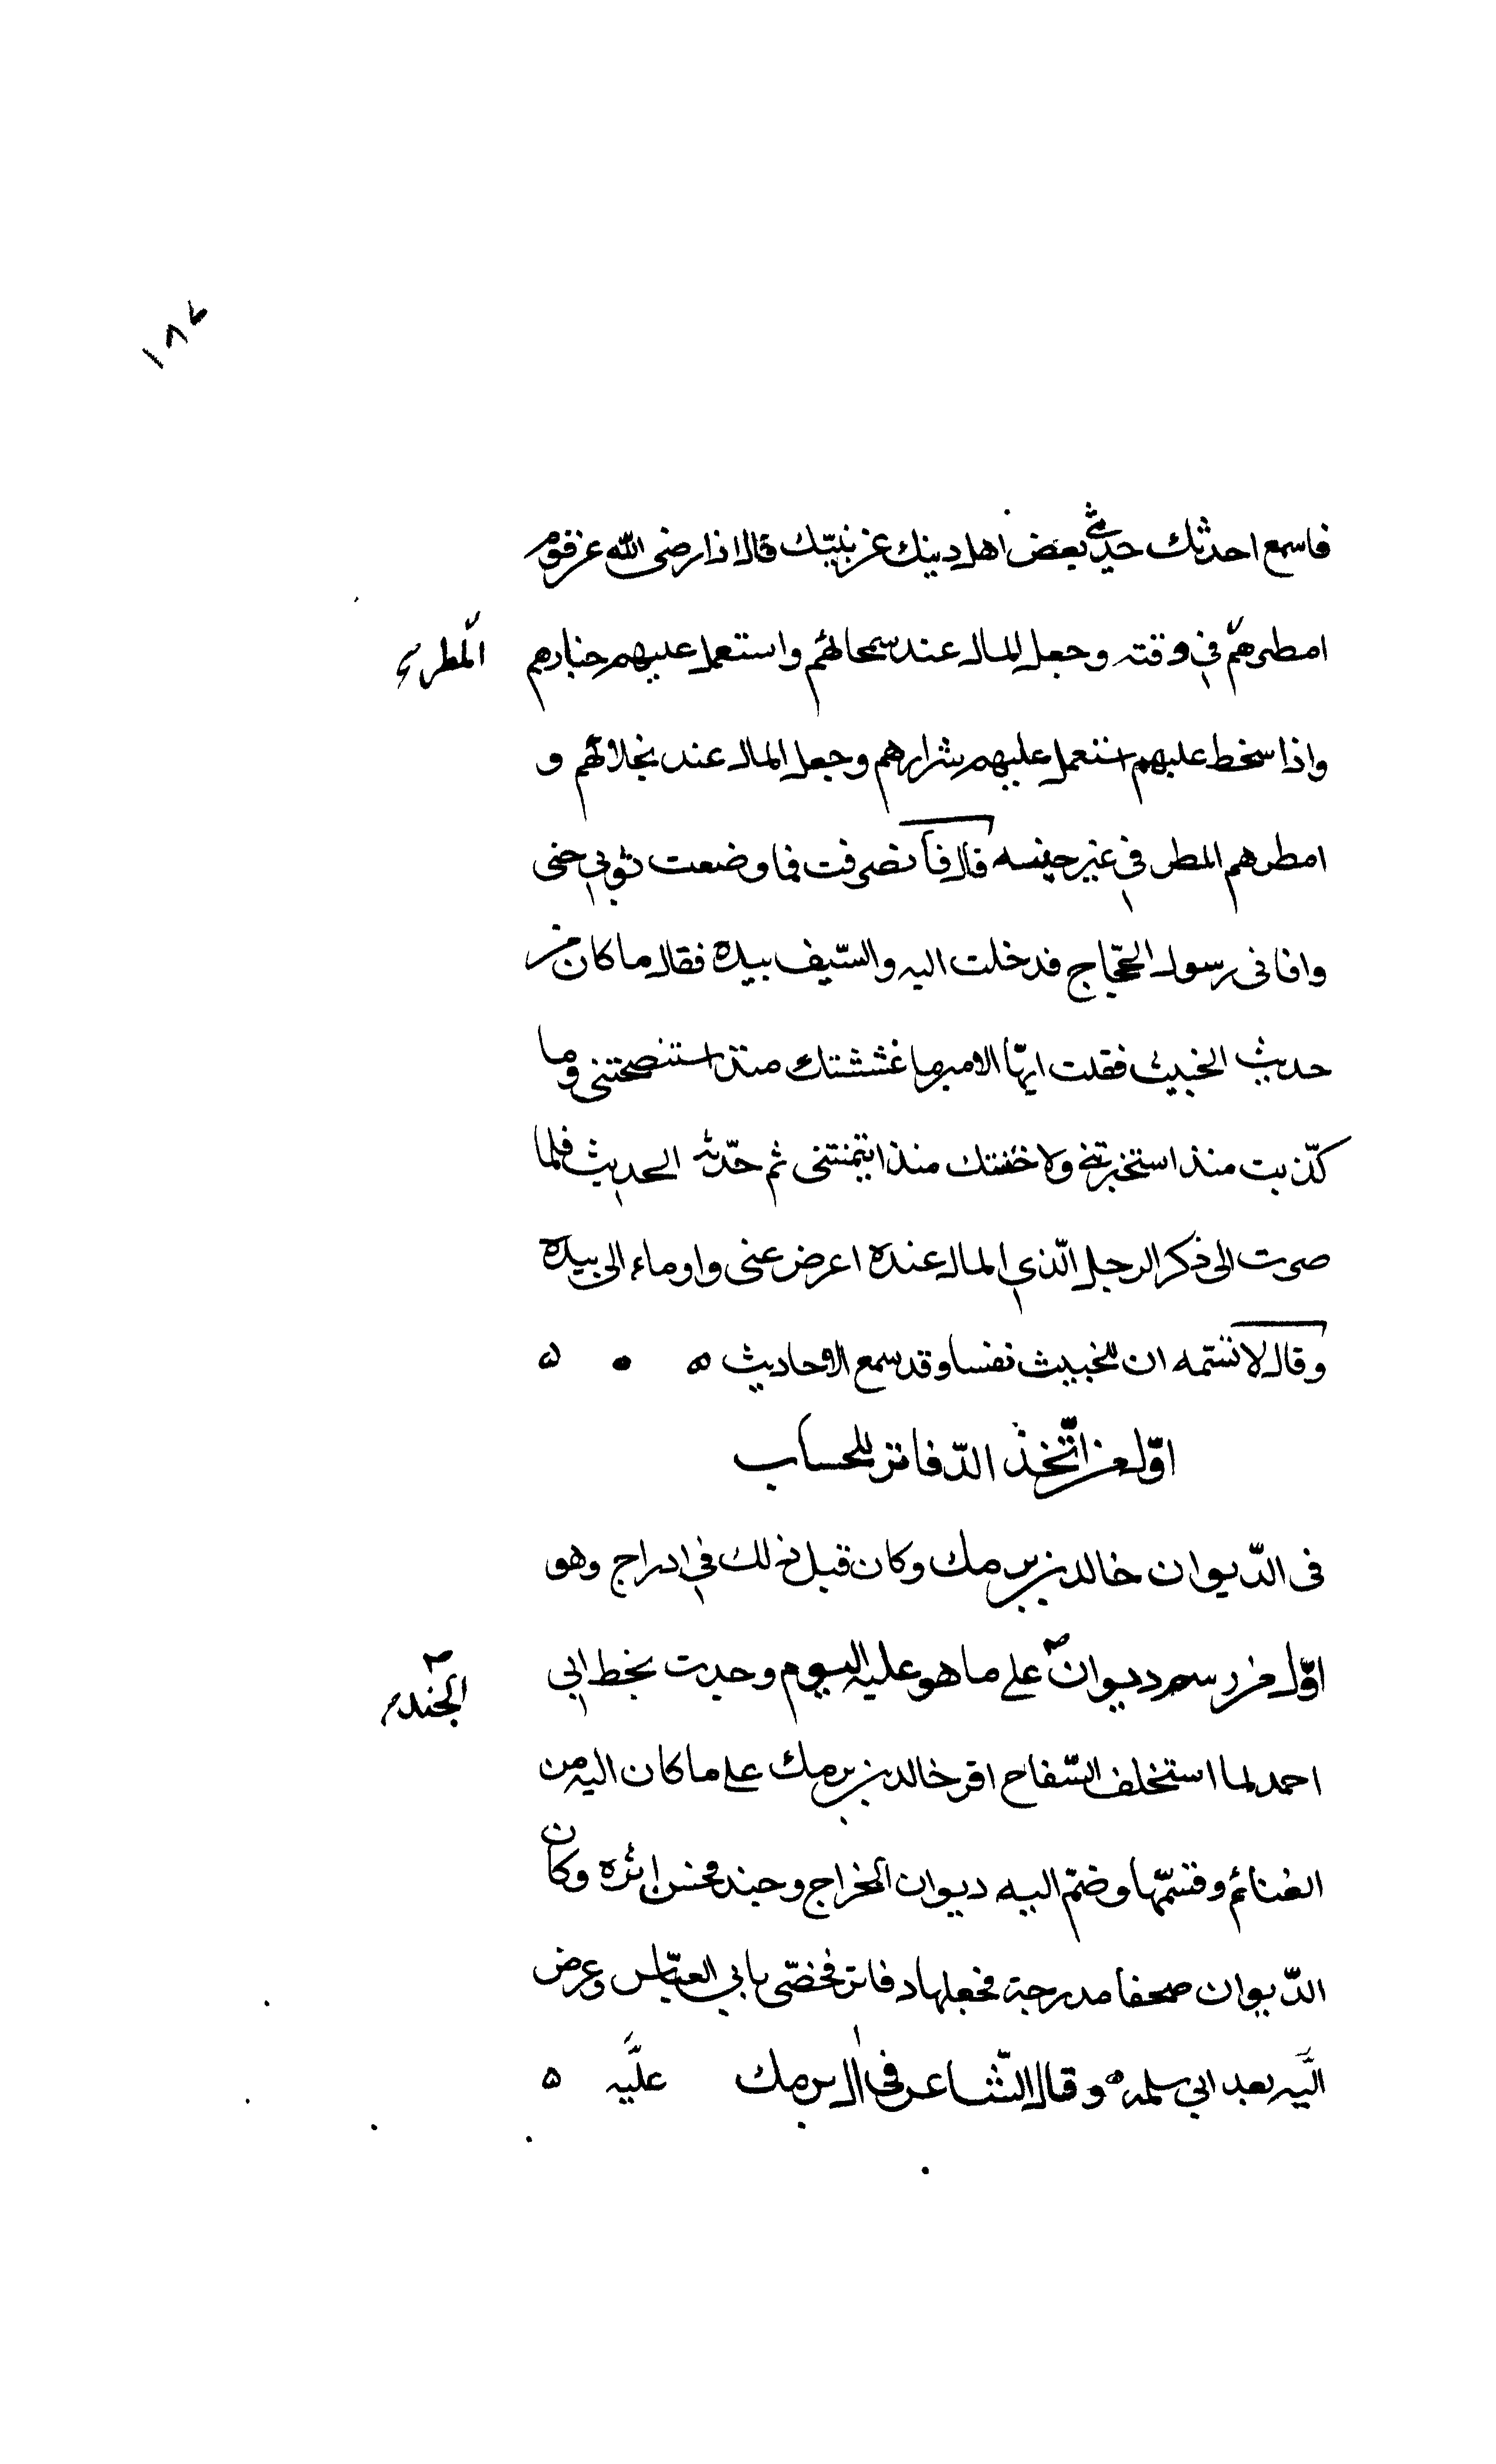 ١٨٧
فاسمع احدثك حدثني بعض اهل دينك عن نبيّك قال اذا رضى الله عن قوم
امطرهم في وقته وجعل المال عند سمحائهم واستعمل عليهم خيارهم المطر
واذا سخط عليهم استعمل عليهم شرارهم وجعل المال عند بخلائهم و
امطرهم المطر في غير حينه قال فانصرفت فما وضعت ثوبي حتى
وافانى رسول الحجّاج فدخلت اليه والسّيف بيده فقال ما كان من
حديث الخبيث فقلت ايّها الامير ما غششتك منذ استنصحتنى وما
كذّبت منذ استخبرتني ولا خنتك منذ ايتمنتنى ثم حدّثته الحديث فلما
صرت الى ذكر الرجل الّذي المال عنده اعرض عنى واوماء الى بيده
وقال لا تسمّه ان للخبيث نفسا وقد سمع الاحاديث ه ٥ ه
اوّل من اتّخذ الدّفاتر للحساب
فى الدّيوان خالد بن برمك وكان قبل ذلك في ادراج وهو
اوّل من رسم ديوان على ما هو عليه اليوم وجدت بخط ابي الجند
احمد لما استخلف السّفاح اقر خالد بن برمك على ما كان اليه من
الغنائم وقسمها وضمّ اليه ديوان الخراج وجند فحسن اثره وكان
الدّيوان صحفا مدرجة فجعلها دفاتر فخصّ بابي العبّاس وعرض
اليّه بعد ابي سلمه وقال الشّاعر في ال برمك عليّه ه